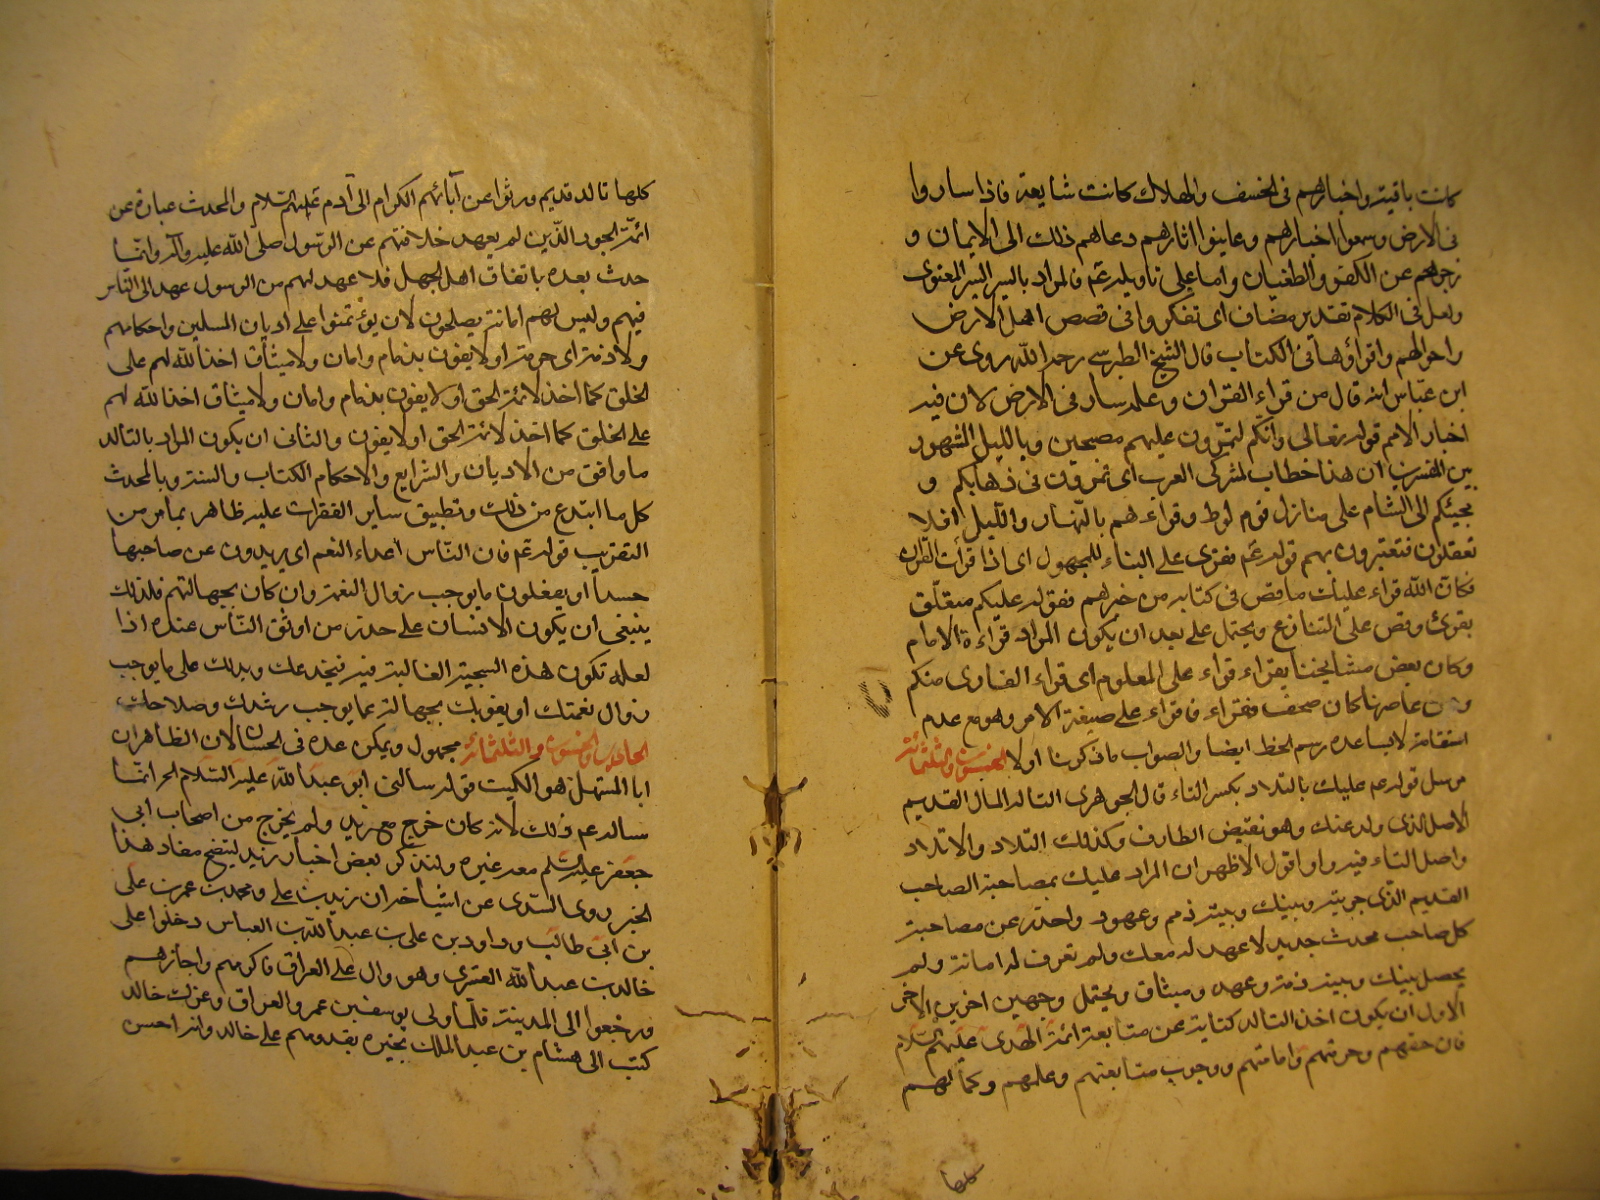 كانت باقية واخبارهم فى الخسف والهلاك كانت شايعة فاذا ساروا
فى الارض وسمعوا اخبارهم وعاينوا اثارهم دعاهم ذلك الى الايمان و
زجرهم عن الكفر والطغيان واما على تاويله عم فالمراد بالسير السير المعنوى
ولعل فى الكلام تقدير مضاف اى تفكروا فى قصص اهل الارض
واحوالهم واقراؤها فى الكتاب قال الشيخ الطبرسى رحمه الله روى عن
ابن عباس انه قال من قراء القران وعلمه سار فى الارض لان فيه
اخبار الامم قوله تعالى وانكم لتمرون عليهم مصبحين وبالليل المشهور
بين المفسرين ان هذا خطاب لمشركى العرب اى تمرون فى ذهابكم و
مجيئكم الى الشام على منازل قوم لوط وقراءهم بالنهار والليل افلا
تعقلون فتعتبرون بهم قوله عم فقرى على البناء للمجهول اى اذا قرأت القران
فكان الله قراء عليك ما قص فى كتابه من خبرهم فقوله عليكم متعلق
بقرئ وقص على التنازع ويحتمل على بعد ان يكون المراد قراءة الامام
وكان بعض مشايخنا يقراء قراء على المعلوم اى قراء القارى منكم
عاصرناه كان صحف فقراء فاقراء على صيغة الامر وهو مع عدم
استقامته لا يساعده رسم الخط ايضا والصواب ما ذكرنا اولا الخمسون والثلثمائة
مرسل قوله عم عليك بالتلاد بكسر التاء قال الجوهرى التالد المال القديم
الاصل الذى ولد عندك وهو نقيض الطارف وكذلك التلاد والاتلاد
واصل التاء فيه واو اقول الاظهر ان المراد عليك بمصاحبة الصاحب
القديم الذى جربته وبينك وبينه ذمم وعهود واحذر عن مصاحبة
كل صاحب محدث جديد لا عهد له معك ولم تعرف له امانة ولم
يحصل بينك وبينه ذمة وعهد وميثاق ويحتمل وجهين اخرين
الاول ان يكون اخذ التالد كناية عن متابعة ائمة الهدى عليهم السلام
فان حقهم وحرمتهم وامامتهم ووجوب متابعتهم وعلمهم وكمالهم
كلها
كلها تالد قديم ورثوا عن آبائهم الكرام الى آدم عليهم السلام والمحدث عبارة عن
ائمة الجور الذين لم يعهد خلافتهم عن الرسول صلى الله عليه وآله وانما
حدث بعده باتفاق اهل الجهل فلا عهد لهم من الرسول عهد الى الناس
فيهم وليس لهم امانة يصلحون لان يؤتمنوا على اديان المسلمين واحكامهم
ولا ذمة اى حرمة او لا يفون بذمام وامان ولا ميثاق اخذ الله لهم على
الخلق كما اخذ لائمة الحق او لا يفون بذمام وامان ولا ميثاق اخذ الله لهم
على الخلق كما اخذ لائمة الحق او لا يفون والثانى ان يكون المراد بالتالد
ما وافق من الاديان والشرايع والاحكام الكتاب والسنة وبالمحدث
كل ما ابتدع من ذلك وتطبيق ساير الفقرات عليه ظاهر بما مر من
التقريب قوله عم فان الناس اعداء النعم اى يريدون عن صاحبها
حسدا او يفعلون ما يوجب زوال النعمة وان كان بجهالتهم فلذلك
ينبغى ان يكون الانسان على حذر من اوثق الناس عنده اذا
لعله تكون هذه السجية الغالبة فيه فيخدعك ويدلك على ما يوجب
زوال نعمتك او يغويك بجهالته عما يوجب رشدك وصلاحك
الحادى والخمسون والثلثمائة مجهول ويمكن عده فى الحسان لان الظاهر ان
ابا المستهل هو الكميت قوله سالنى ابو عبد الله عليه السلام الحر انما
ساله عم ذلك لانه كان خرج مع زيد ولم يخرج من اصحاب ابى
جعفر عليه السلم معه غيره ولنذكر بعض اخبار زيد ليتضح مفاد هذا
الخبر روى السدى عن اشياخه ان زيد بن على ومحمد بن عمر بن على
بن ابى طالب وداود بن على بن عبد الله بن العباس دخلوا على
خالد بن عبد الله القسرى وهو وال على العراق فاكرمهم واجازهم
ورجعوا الى المدينة فلما ولى يوسف بن عمر والعراق وعزل خالد
كتب الى هشام بن عبد الملك يخبره بقدومهم على خالد وانه احسن